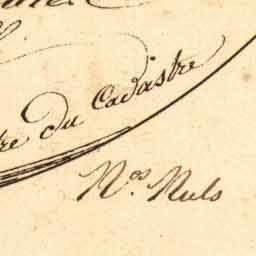 tre du Cadastre
Nos Nuls